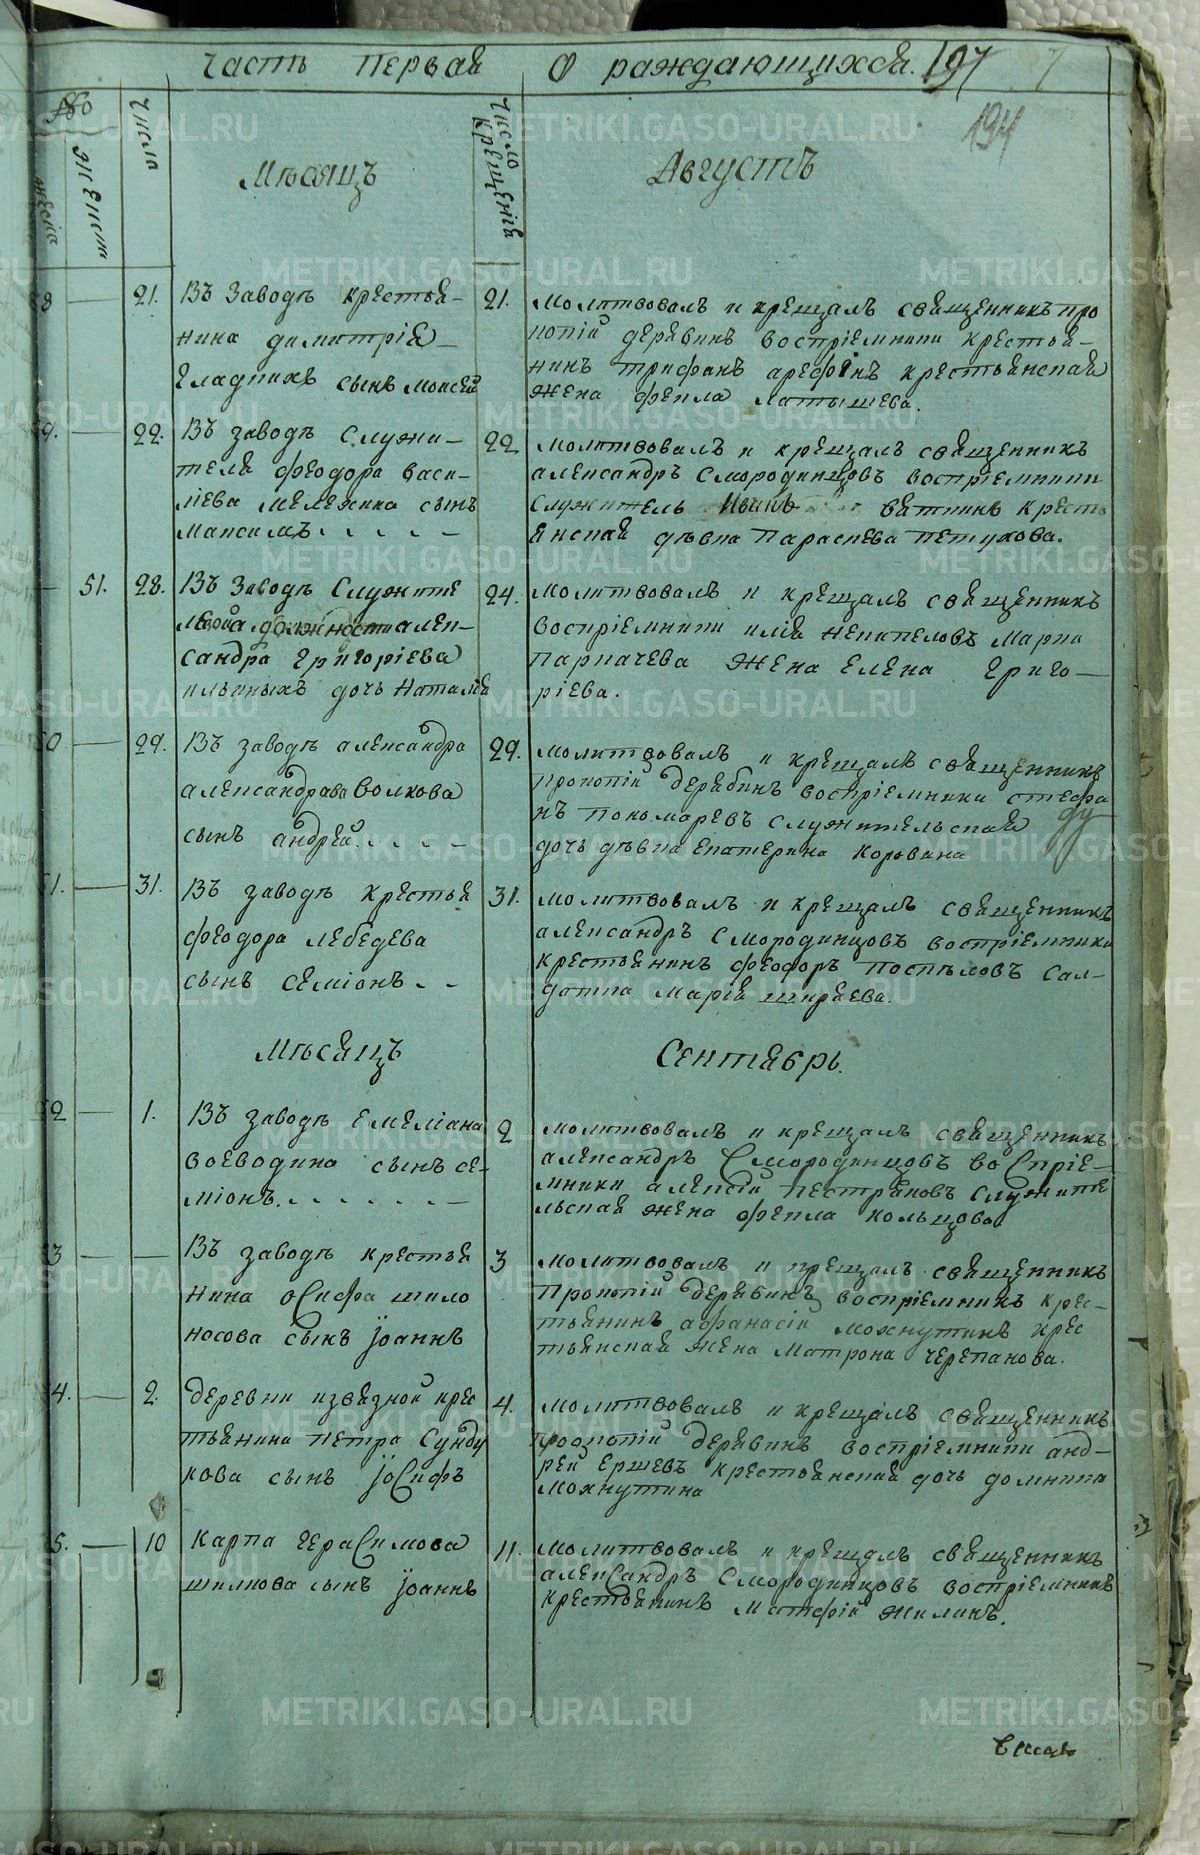 часть первая о раждающихся. 197
194
число
женска
числа
число крещенія
Мѣсяцъ Августъ
21. Въ заводѣ крестья-
нина димитрія
Гладкихъ сынъ моисей
21. молитвовалъ и крещалъ священникъ про
копій дерябинъ воспріемники крестья-
нинъ трифанъ арефинъ крестьянская
жена фекла латышева.
22. Въ заводѣ служи-
теля феодора васи-
лієва мележина сынъ
максимъ
22 молитвовалъ и крещалъ священникъ
александръ смородинцовъ воспріемники
служитель Иванъ вяткинъ кресть
янская дѣвка параскева петухова.
51. 28. Въ заводѣ служите
должности алек-
сандра Григоріева
ильиныхъ дочь наталія
24. молитвовалъ и крещалъ священникъ
воспріемники илія некипеловъ марки
карпачева жена елена григо-
ріева.
29. Въ заводѣ александра
александрава волкова
сынъ андрей
29. молитвовалъ и крещалъ священникъ
прокопій дерябинъ воспріемники стефа
нъ пономаревъ служительская
дочь дѣвка екатерина коровина
31. Въ заводѣ крестья
феодора лебедева
сынъ семіонъ
31. молитвовалъ и крещалъ священникъ
александръ смородинцовъ воспріемники
крестьянинъ феодоръ поспѣловъ сал-
датка марія ширяева.
Мѣсяцъ Сентябрь.
1. Въ заводѣ емеліана
воеводина сынъ се-
міонъ.
2 молитвовалъ и крещалъ священникъ
александръ смородинцовъ воспріе-
мники алексій пестряковъ служите
льская жена фекла кольцова
Въ заводѣ крестья
нина осифа шило
носова сынъ іоаннъ
3 молитвовалъ и крещалъ священникъ
прокопій дерябинъ воспріемникъ крес-
тьянинъ афанасій мохнуткинъ крес
тьянская жена матрона черепанова.
2. деревни извязной крес
тьянина петра сунду
кова сынъ іосифъ
4. молитвовалъ и крещалъ священникъ
прокопій дерябинъ воспріемники анд-
рей ершевъ крестьянская дочь домника
мохнуткина
10 карпа герасимова
шилкова сынъ іоаннъ
11. молитвовалъ и крещалъ священникъ
александръ смородинцовъ воспріемникъ
крестьянинъ матфій жилинъ.
METRIKI.GASO-URAL.RU